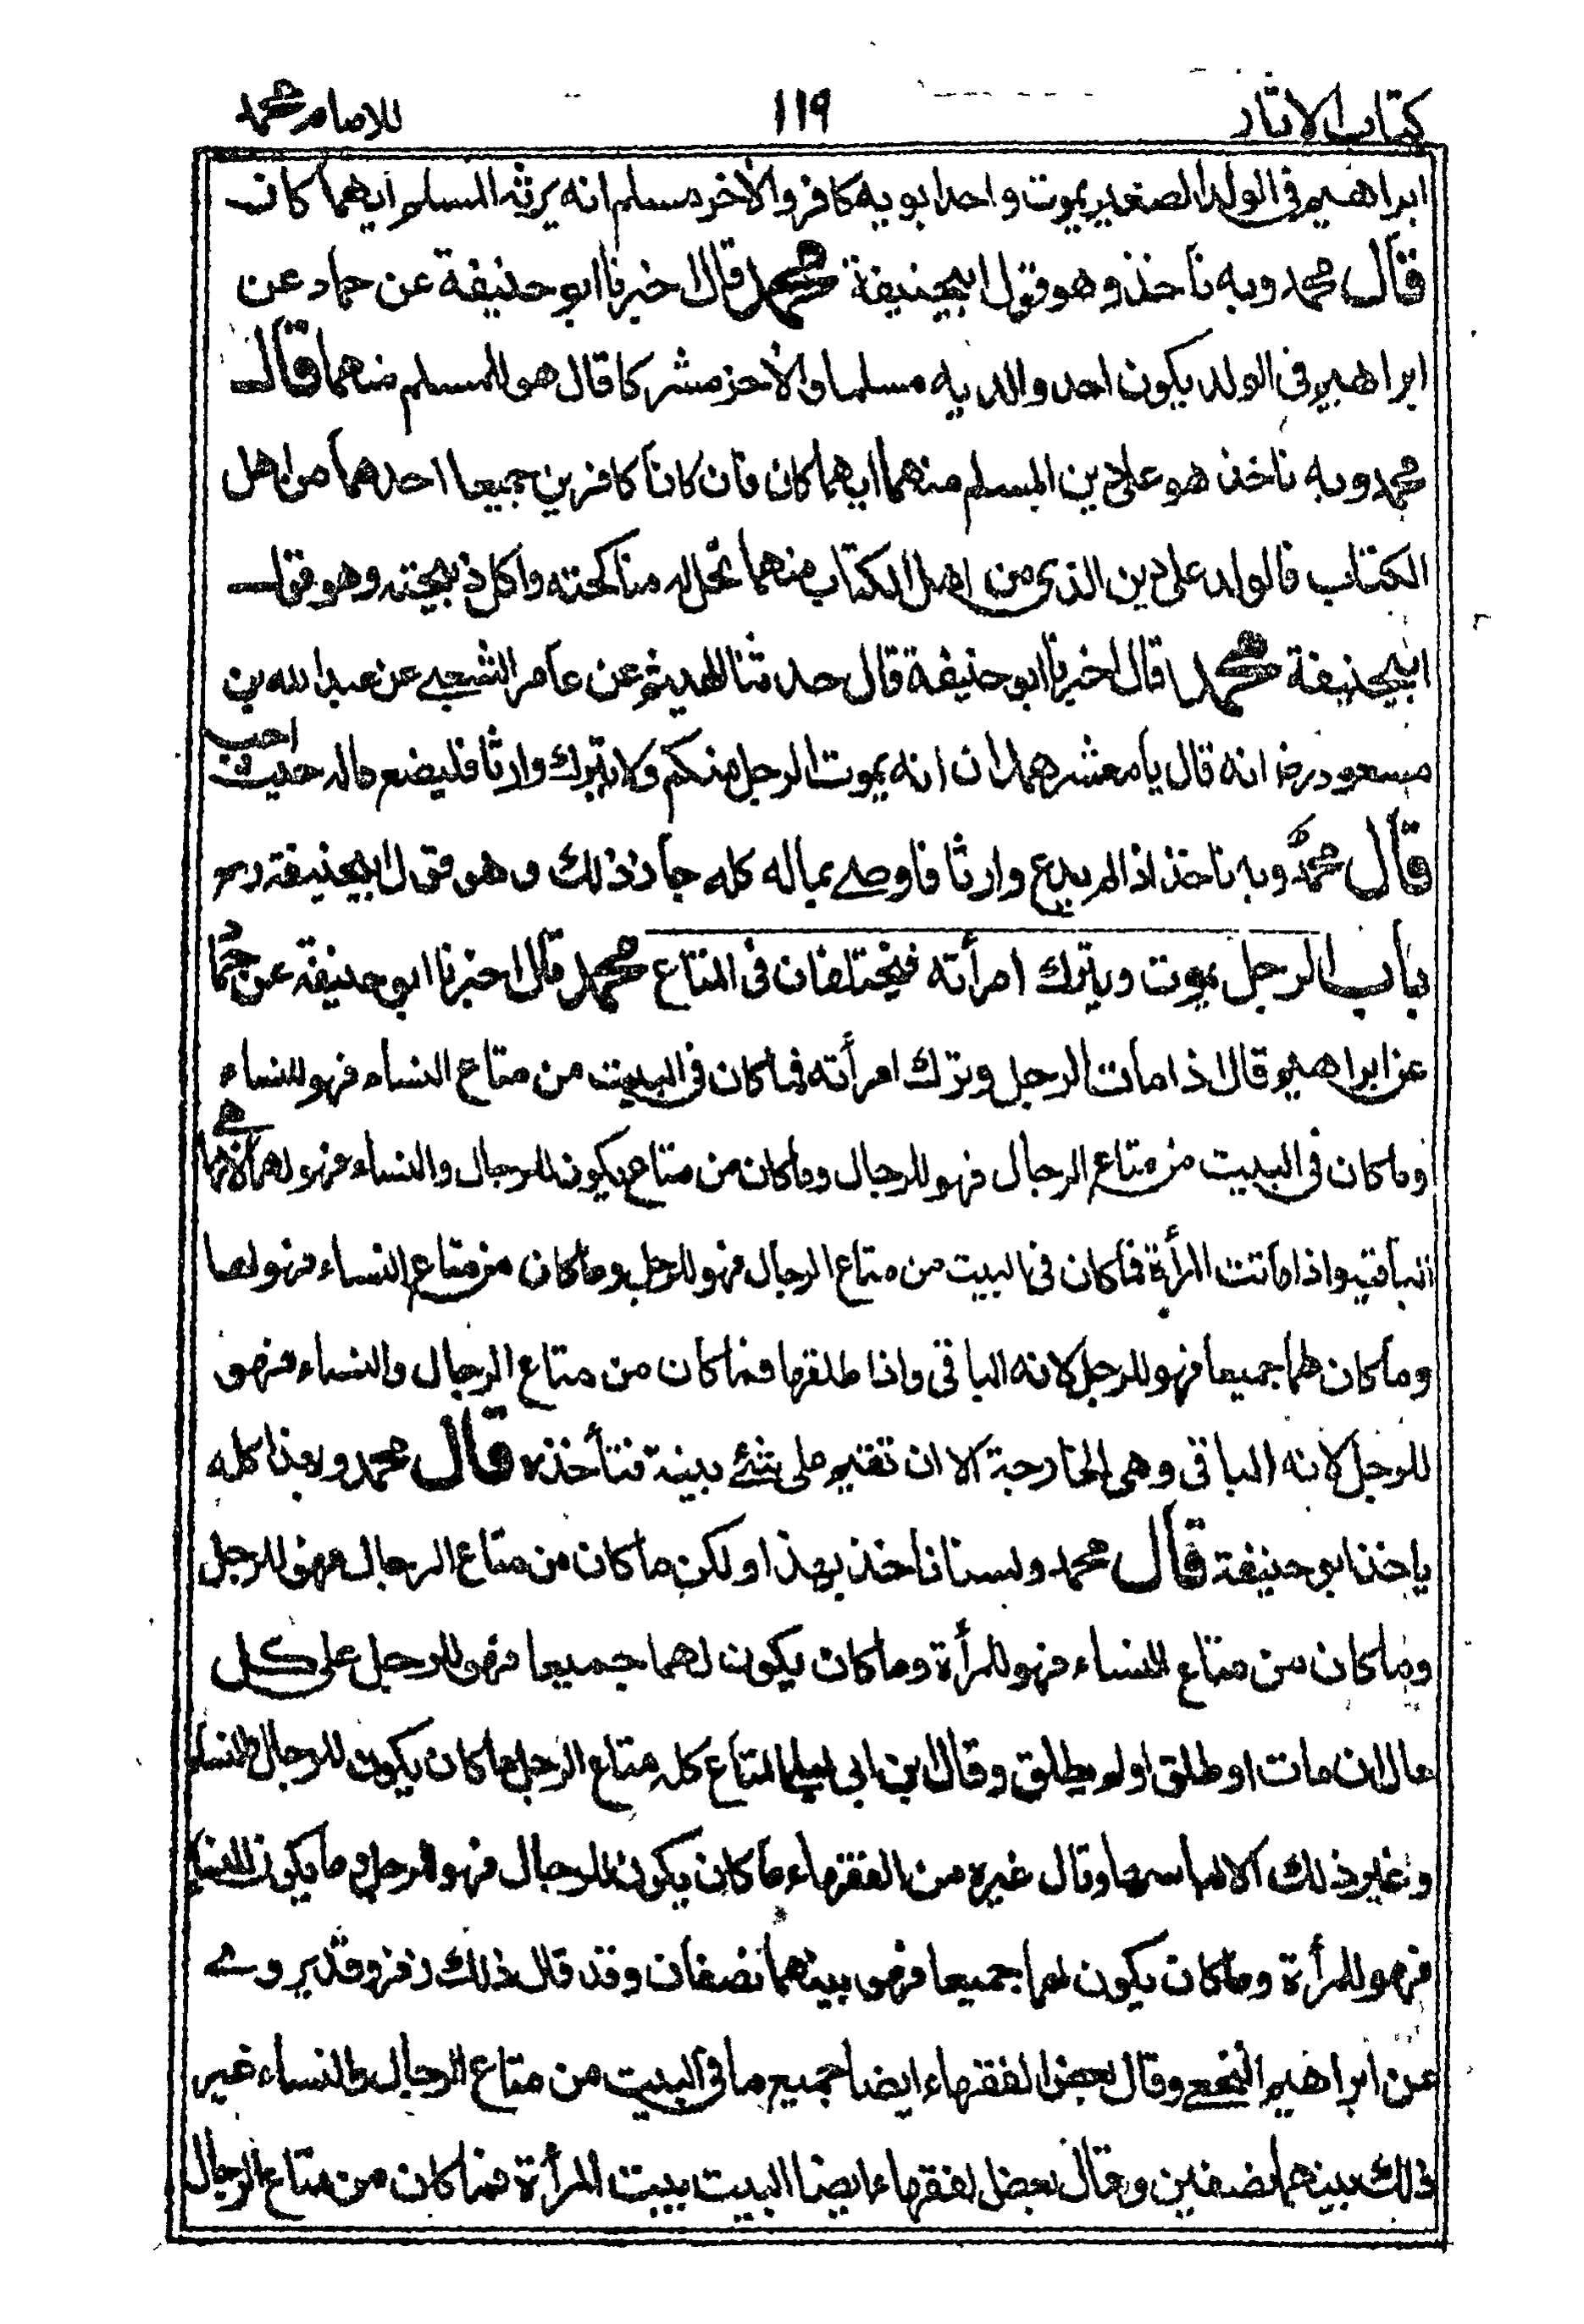 كتاب الاثار ١١٩ للامام محمد
ابراهيم فى الولد الصغير يموت واحد ابويه كافر والآخر مسلم انه يرثه المسلم ايهما كان
قال محمد وبه ناخذ وهو قول ابيحنيفة محمد قال اخبرنا ابو حنيفة عن حماد عن
ابراهيم فى الولد يكون احد والديه مسلما والآخر مشركا قال هو للمسلم منهما قال
محمد وبه ناخذ هو على دين المسلم منهما ايهما كان فان كانا كافرين جميعا احدهما من اهل
الكتاب فالولد على دين الذى من اهل الكتاب منهما تحل له مناكحته واكل ذبيحته وهو قول
ابيحنيفة محمد قال اخبرنا ابو حنيفة قال حدثنا الهيثم عن عامر الشعبي عن عبد الله بن
مسعود رضـ انه قال يا معشر همدان انه يموت الرجل منكم ولا يترك وارثا فليضع ماله حيث احب
قال محمد وبه ناخذ اذا لم يدع وارثا فاوصى بماله كله جاز ذلك وهو قول ابيحنيفة رح
باب الرجل يموت ويترك امرأته فيختلفان فى المتاع محمد قال اخبرنا ابو حنيفة عن حماد
عن ابراهيم قال اذا مات الرجل وترك امرأته فما كان فى البيت من متاع النساء فهو للنساء
وما كان فى البيت من متاع الرجال فهو للرجال وما كان من متاع يكون للرجال والنساء فهو لها لانها هى
الباقية واذا ماتت المرأة فما كان فى البيت من متاع الرجال فهو للرجل وما كان من متاع النساء فهو لها
وما كان لهما جميعا فهو للرجل لانه الباقى واذا طلقها فما كان من متاع الرجال والنساء فهو
للرجل لانه الباقى وهى الخارجة الا ان تقيم على شئ بينة فتأخذه قال محمد وبهذا كله
ياخذ ابو حنيفة قال محمد ولسنا ناخذ بهذا ولكن ما كان من متاع الرجال فهو للرجل
وما كان من متاع النساء فهو للمرأة وما كان يكون لهما جميعا فهو للرجل على كل
حال ان مات او طلق او لم يطلق وقال ابن ابى ليلى المتاع كله متاع الرجل ما كان يكون للرجال والنساء
وغير ذلك الا لباسها وقال غيره من الفقهاء ما كان يكون للرجال فهو للرجل وما يكون للنساء
فهو للمرأة وما كان يكون لهما جميعا فهو بينهما نصفان وقد قال ذلك زفر وقد يروى
عن ابراهيم النخعي وقال بعض الفقهاء ايضا جميع ما فى البيت من متاع الرجال والنساء غير
ذلك بينهما نصفين وقال بعض الفقهاء ايضا البيت بيت المرأة فما كان من متاع الرجال